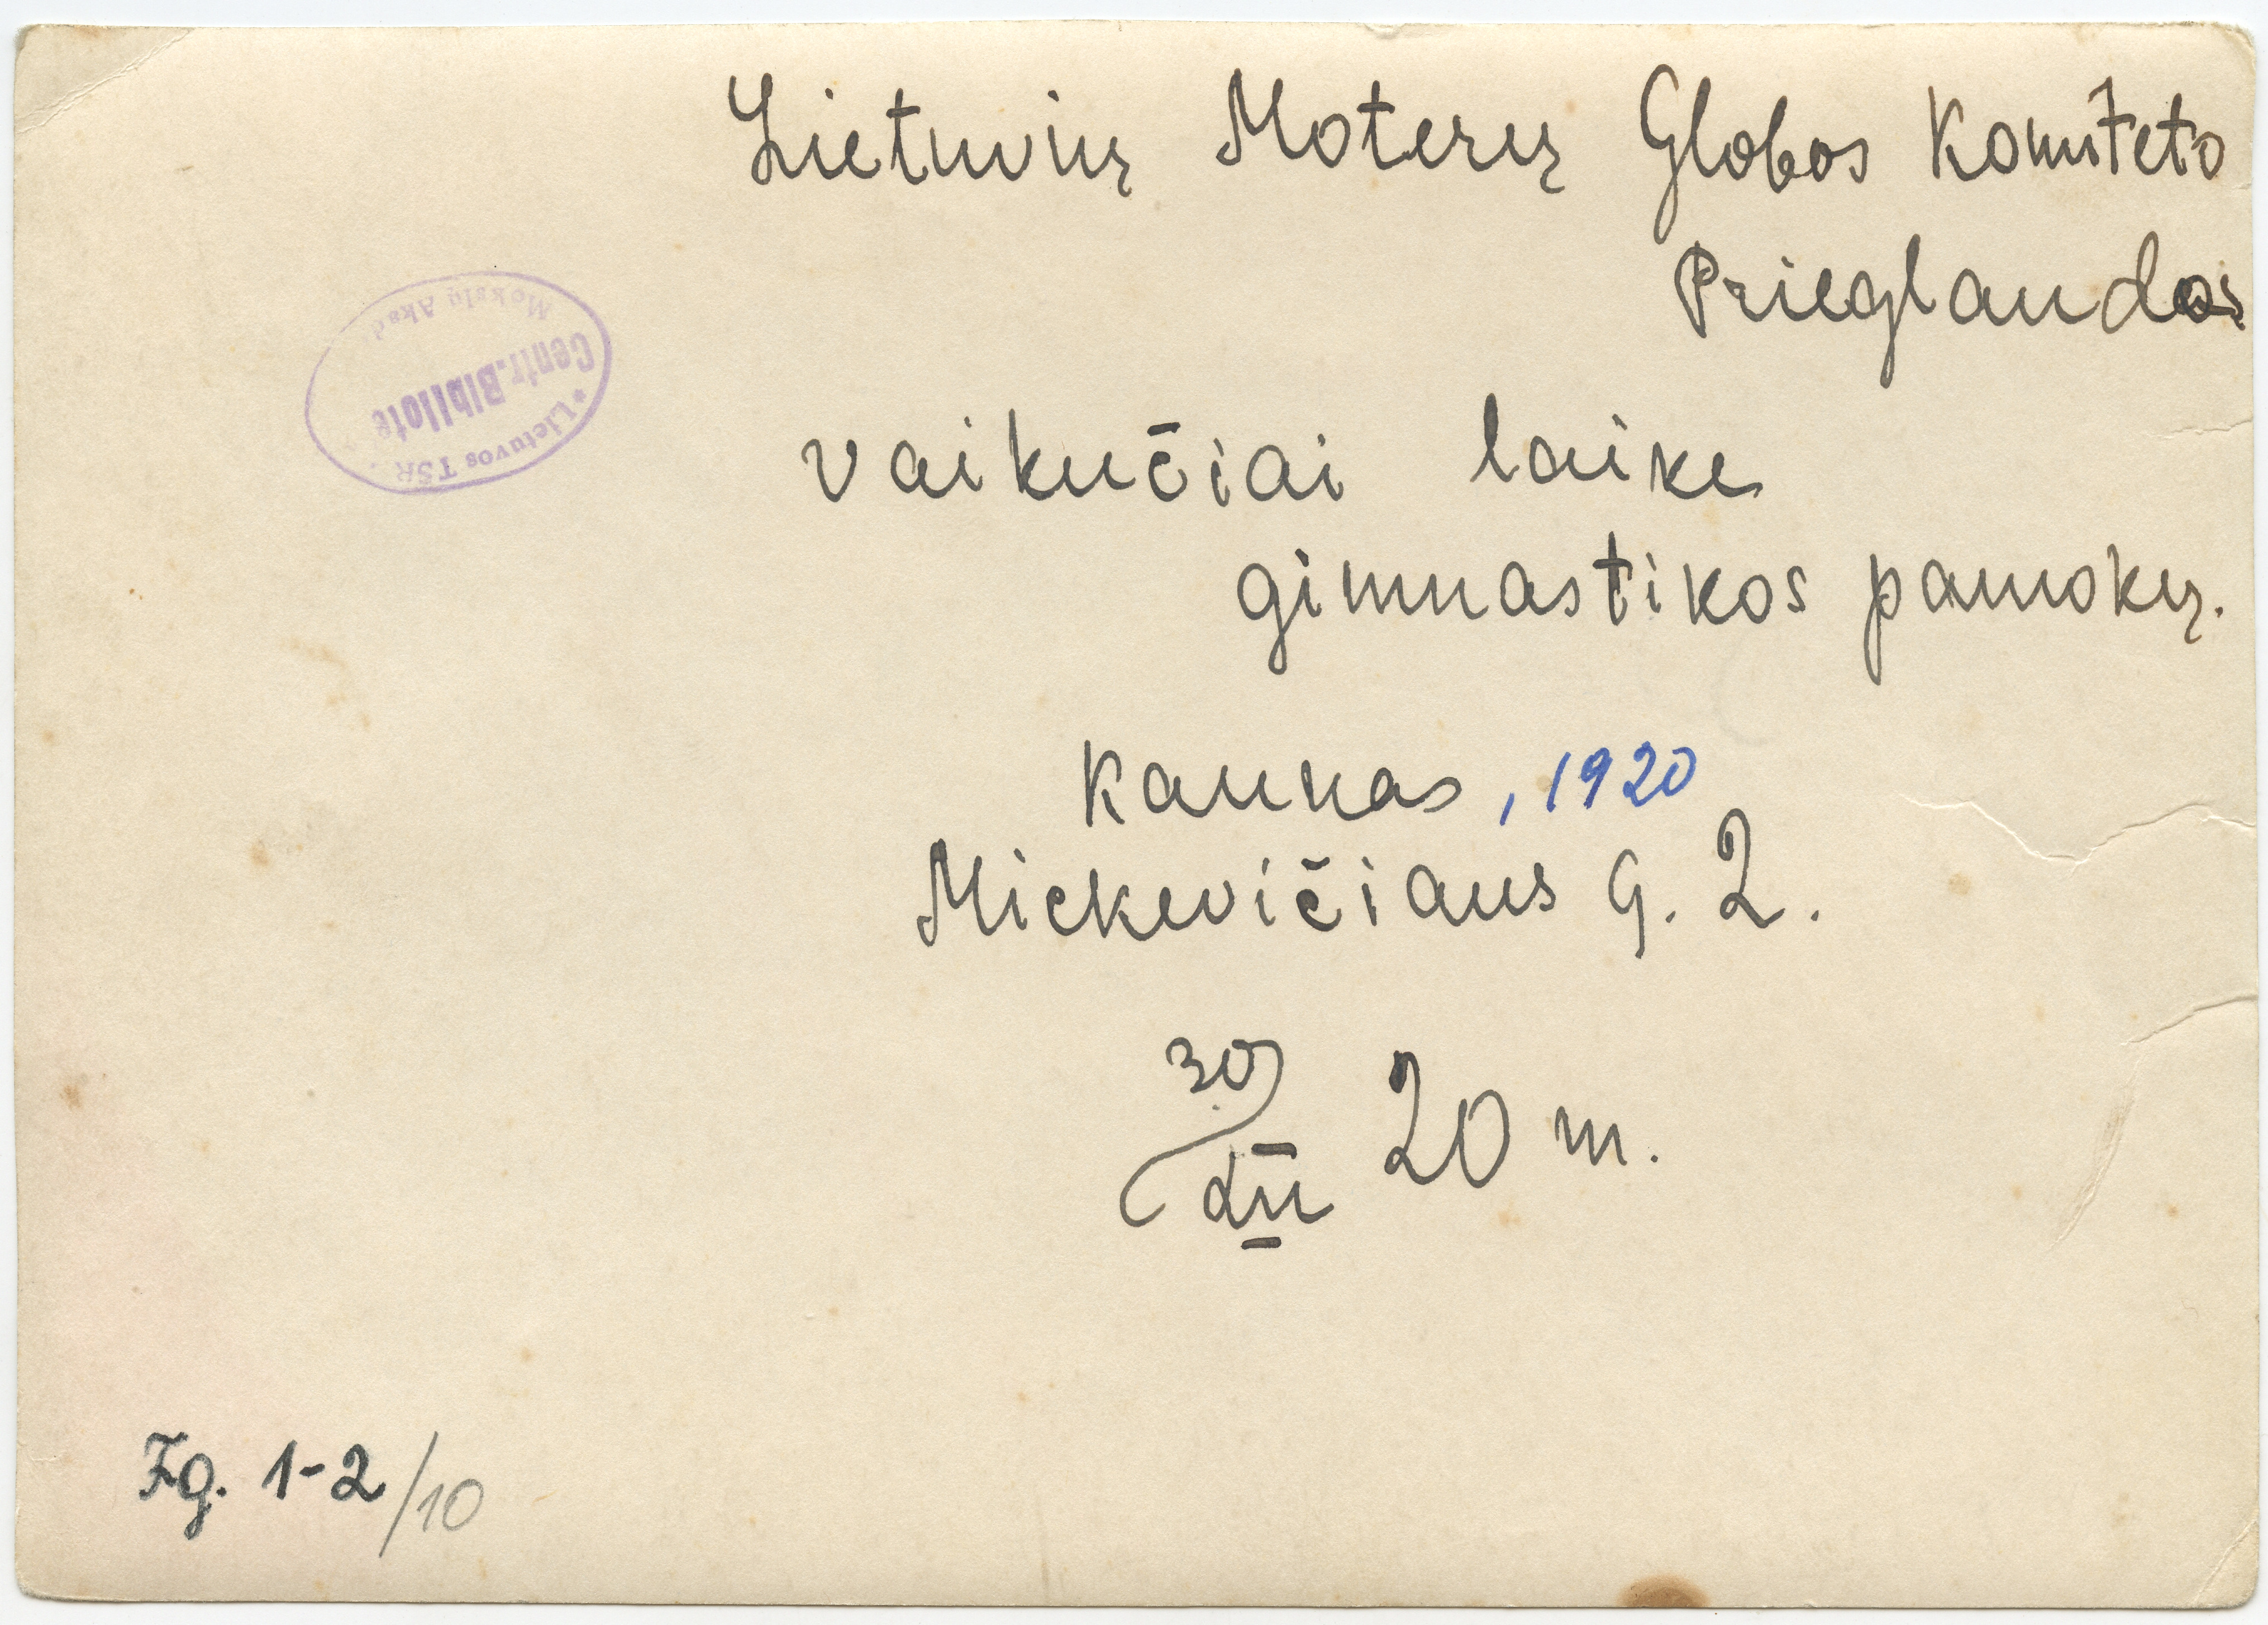 Lietuvių Moterų Globos Komiteto
Prieglaudos
vaikučiai laike
gimnastikos pamokų.
Kaunas, 1920
Mickevičiaus g. 2.
30/XII 20 m.
Fg. 1-2/10
Lietuvos TSR
Centr. Bibliote
Mokslų Akad